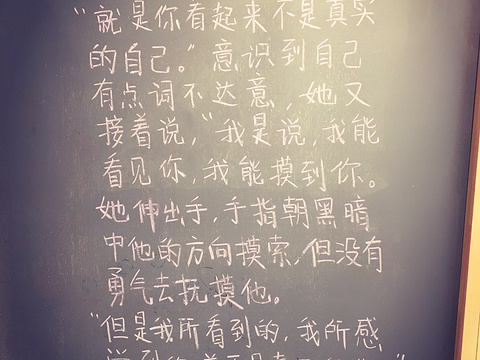 “就是你看起来不是真实
的自己。”意识到自己
有点词不达意，她又
接着说，“我是说，我能
看见你，我能摸到你。
她伸出手，手指朝黑暗
中他的方向摸索，但没有
勇气去抚摸他。
“但是我所看到的，我所感